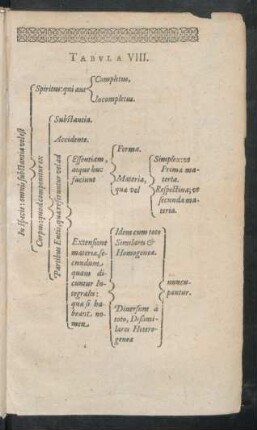 TABVLA VIII.
In specie: omnis substantia vel est
Spiritus: qui aut
Completus.
Incompletus.
Corpus: quod componitur ex
Substantia.
Accidente.
Partibus Entis, quæ referuntur vel ad
Essentiam,
atque huc
faciunt
Forma.
Materia,
quæ vel
Simplex: vt
Prima ma-
teria.
Respectiua; vt
secunda ma-
teria.
Extensionē
materiæ, se-
cundum
quam di-
cuntur In-
tegrales:
quæ si ha-
beant no-
men
Idem cum toto
Similares &
Homogeneæ.
Diuersum à
toto, Dissimi-
lares Hetero-
geneæ
nuncu-
pantur.